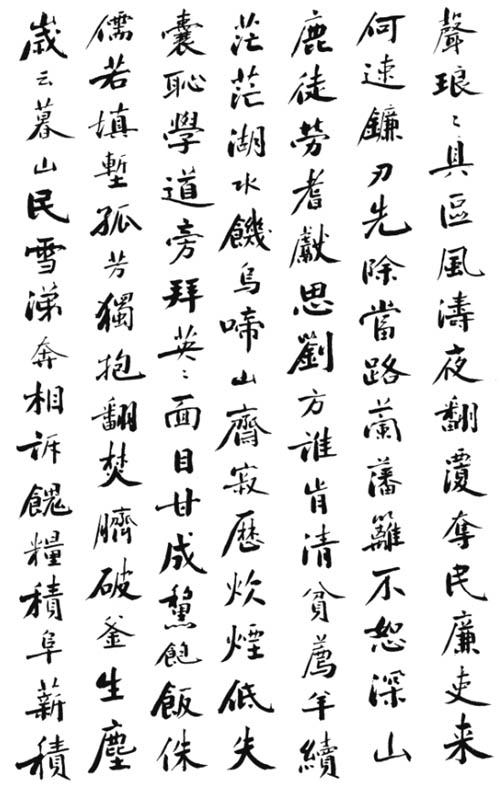 聲琅々具區風濤夜翻覆奪民廉吏来
何速鐮刃先除當路蘭藩籬不恕深山
鹿徒勞耆獻思劉方誰肯清貧薦牟續
茫茫湖水饑烏啼山齊寂歷炊煙低失
囊恥學道旁拜英々面目甘成黧飽飯侏
儒若填塹孤芳獨抱翻焚臍破釜生塵
歲云暮山民雪涕奔相訴餽糧積阜薪積